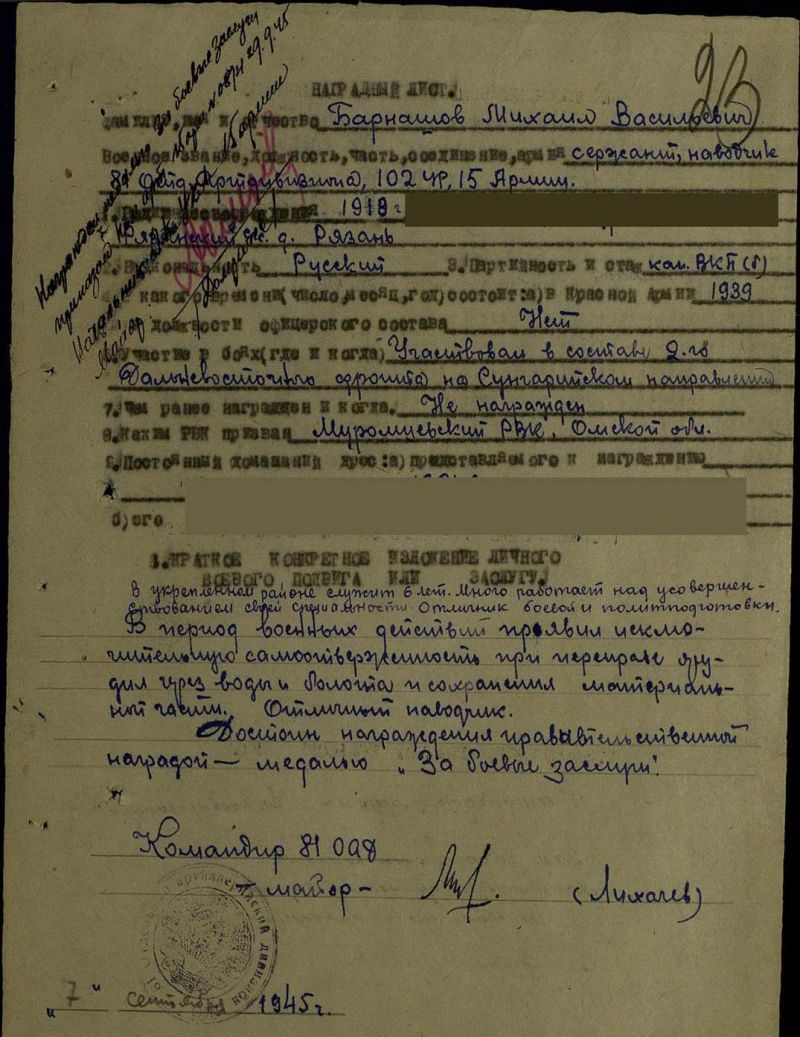 23
Награжден
боевые заслуги
29.9.45
НАГРАДНЫЙ ЛИСТ.
Фамилия, имя и отчество Барнашов Михаил Васильевич
Военное звание, должность, часть, соединение, армия сержант, наводчик
81 Отд. Артдивизиона, 102 УР, 15 Армии.
1. 1918 г.
Рязанский д. Рязань
2. Национальность Русский 3. Партийность и стаж кан. ВКП(б)
4. С какого времени (число, месяц, год) состоит (а) в Красной Армии 1939
5. В должности офицерского состава Нет
6. Участие в боях (где и когда) Участвовал в составе 2-го
Дальневосточного фронта на Сунгарийском направлении
7. Чем ранее награжден и когда. Не награжден
8. Каким РВК призван Муромцевский РВК, Омской обл.
9. Постоянный домашний адрес: а) представляемого к награждению
б) его
1. КРАТКОЕ КОНКРЕТНОЕ ИЗЛОЖЕНИЕ ЛИЧНОГО
БОЕВОГО ПОДВИГА ИЛИ ЗАСЛУГУ.
В укрепленном районе служит 6 лет. Много работает над усовершен-
ствованием своей специальности. Отличник боевой и политподготовки.
В период военных действий проявил исклю-
чительную самоотверженность при переправе ору-
дия через воды и болота и сохранения материаль-
ной части. Отличный наводчик.
Достоин награждения правительственной
наградой — медалью "За боевые заслуги".
Командир 81 оад
майор - (Лихачев)
артиллерийский дивизион
"7" сентября 1945 г.